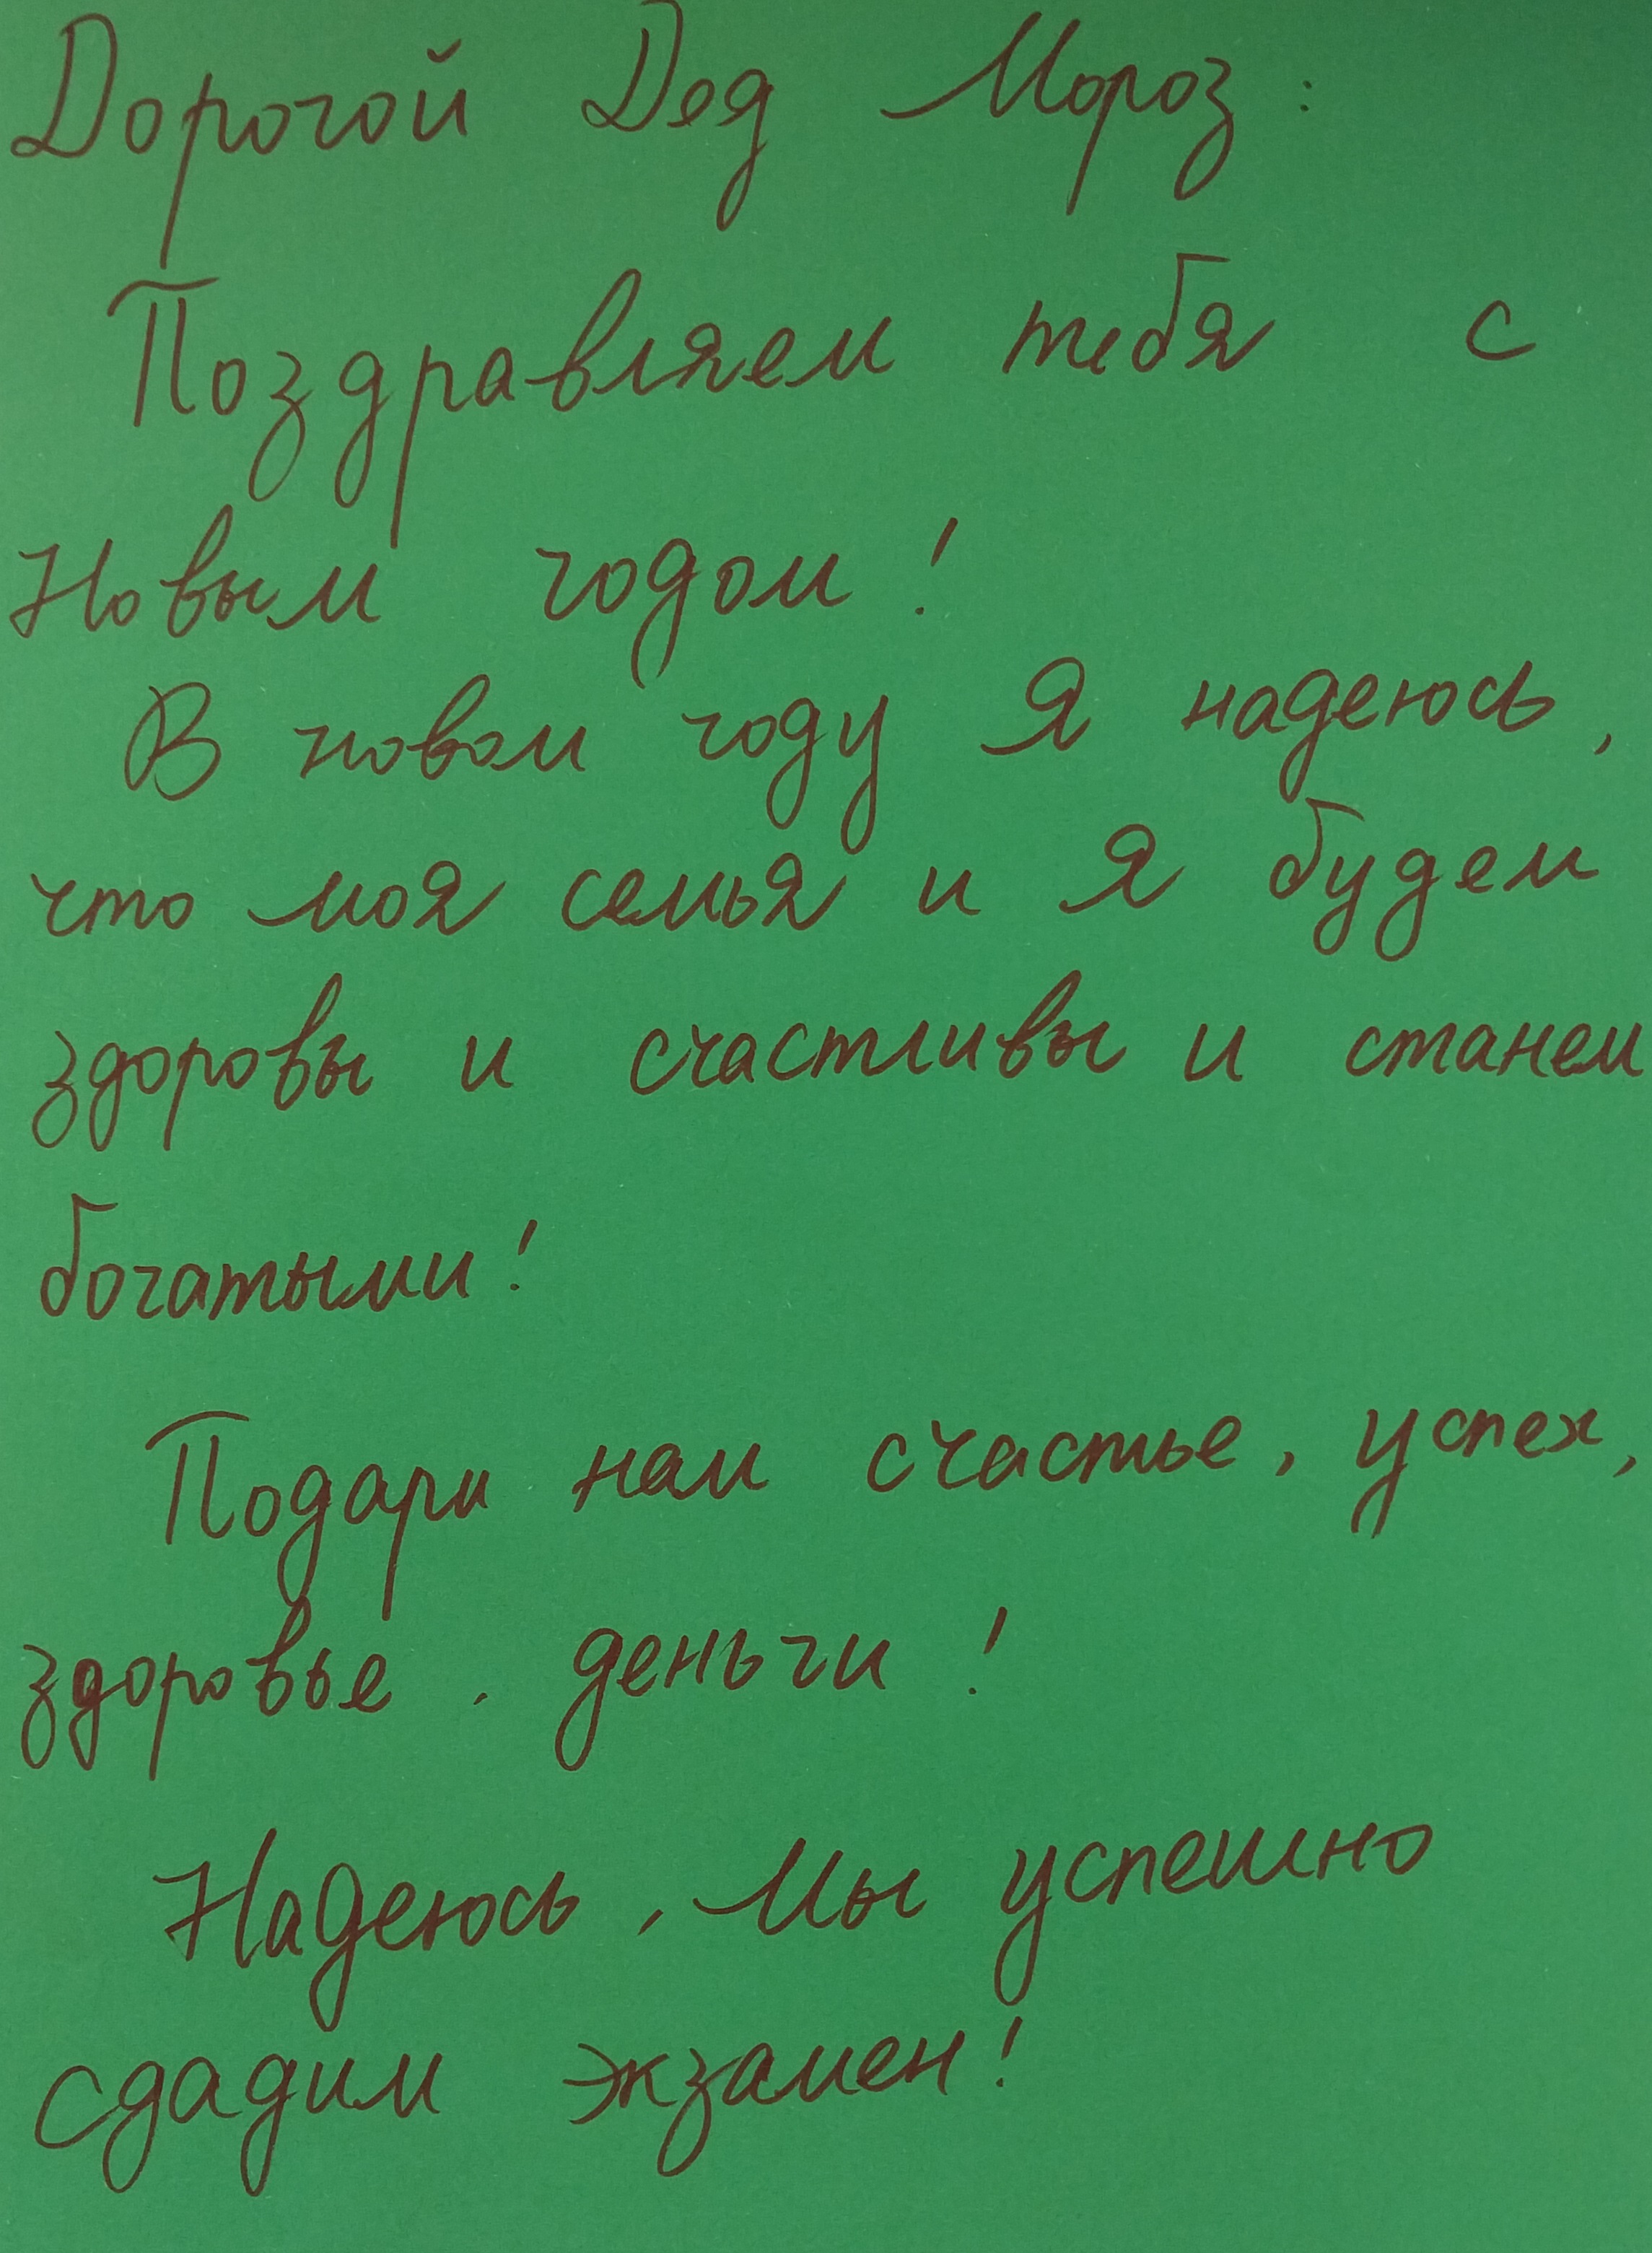 Дорогой Дед Мороз:
Поздравляем тебя с
Новым годом!
В новом году Я надеюсь,
что моя семья и Я будем
здоровы и счастливы и станем
богатыми!
Подари нам счастье, успех,
здоровье, деньги!
Надеюсь, Мы успешно
сдадим экзамен!